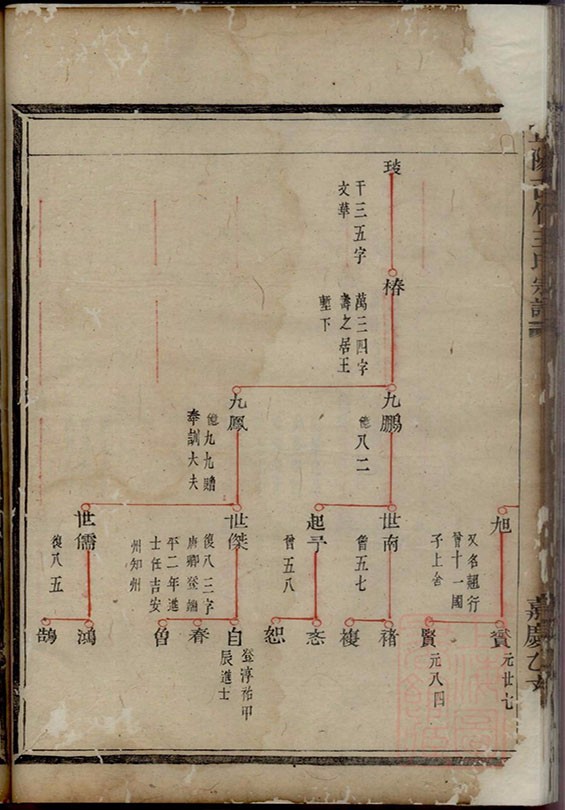 王氏宗譜
嘉慶乙亥
琰
干三五字
文華
椿
萬三四字
壽之居王
塹下
九鵬
德八二
九鳳
德九九贈
奉訓大夫
旭
又名翹行
曾十一國
子上舍
世南
曾五七
起予
曾五八
世傑
復八三字
唐卿登端
平二年進
士任吉安
州知州
世儒
復八五
賓
元廿七
賢
元八四
禇
複
恣
恕
自
登淳祐甲
辰進士
春
魯
鴻
鵠